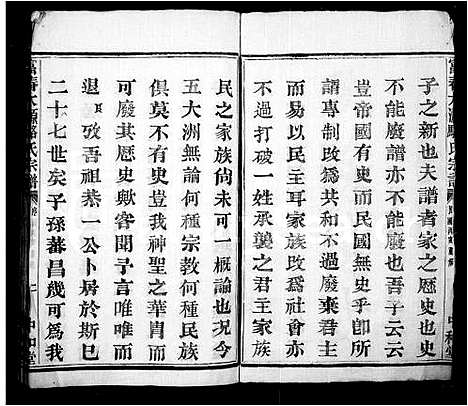 子之新也夫譜者家之歴史也史
不能廢譜亦不能廢吾子云云
豈帝國有史而民國無史乎卽所
謂專制共和亦不過廢棄君主
易而以民主耳彼社會革命亦
不過打破一姓承襲之君主家族
民之家族尙未可一概論也况今
五大洲無論何種宗教何種民族
俱莫不有歴史豈我神聖之華胄
可廢其歴史歟客聞予言唯唯而
退 攷吾祖恭一公卜居於斯已
二十七世矣子孫蕃昌歲可爲我
富春大源駱氏宗譜
二
中和堂